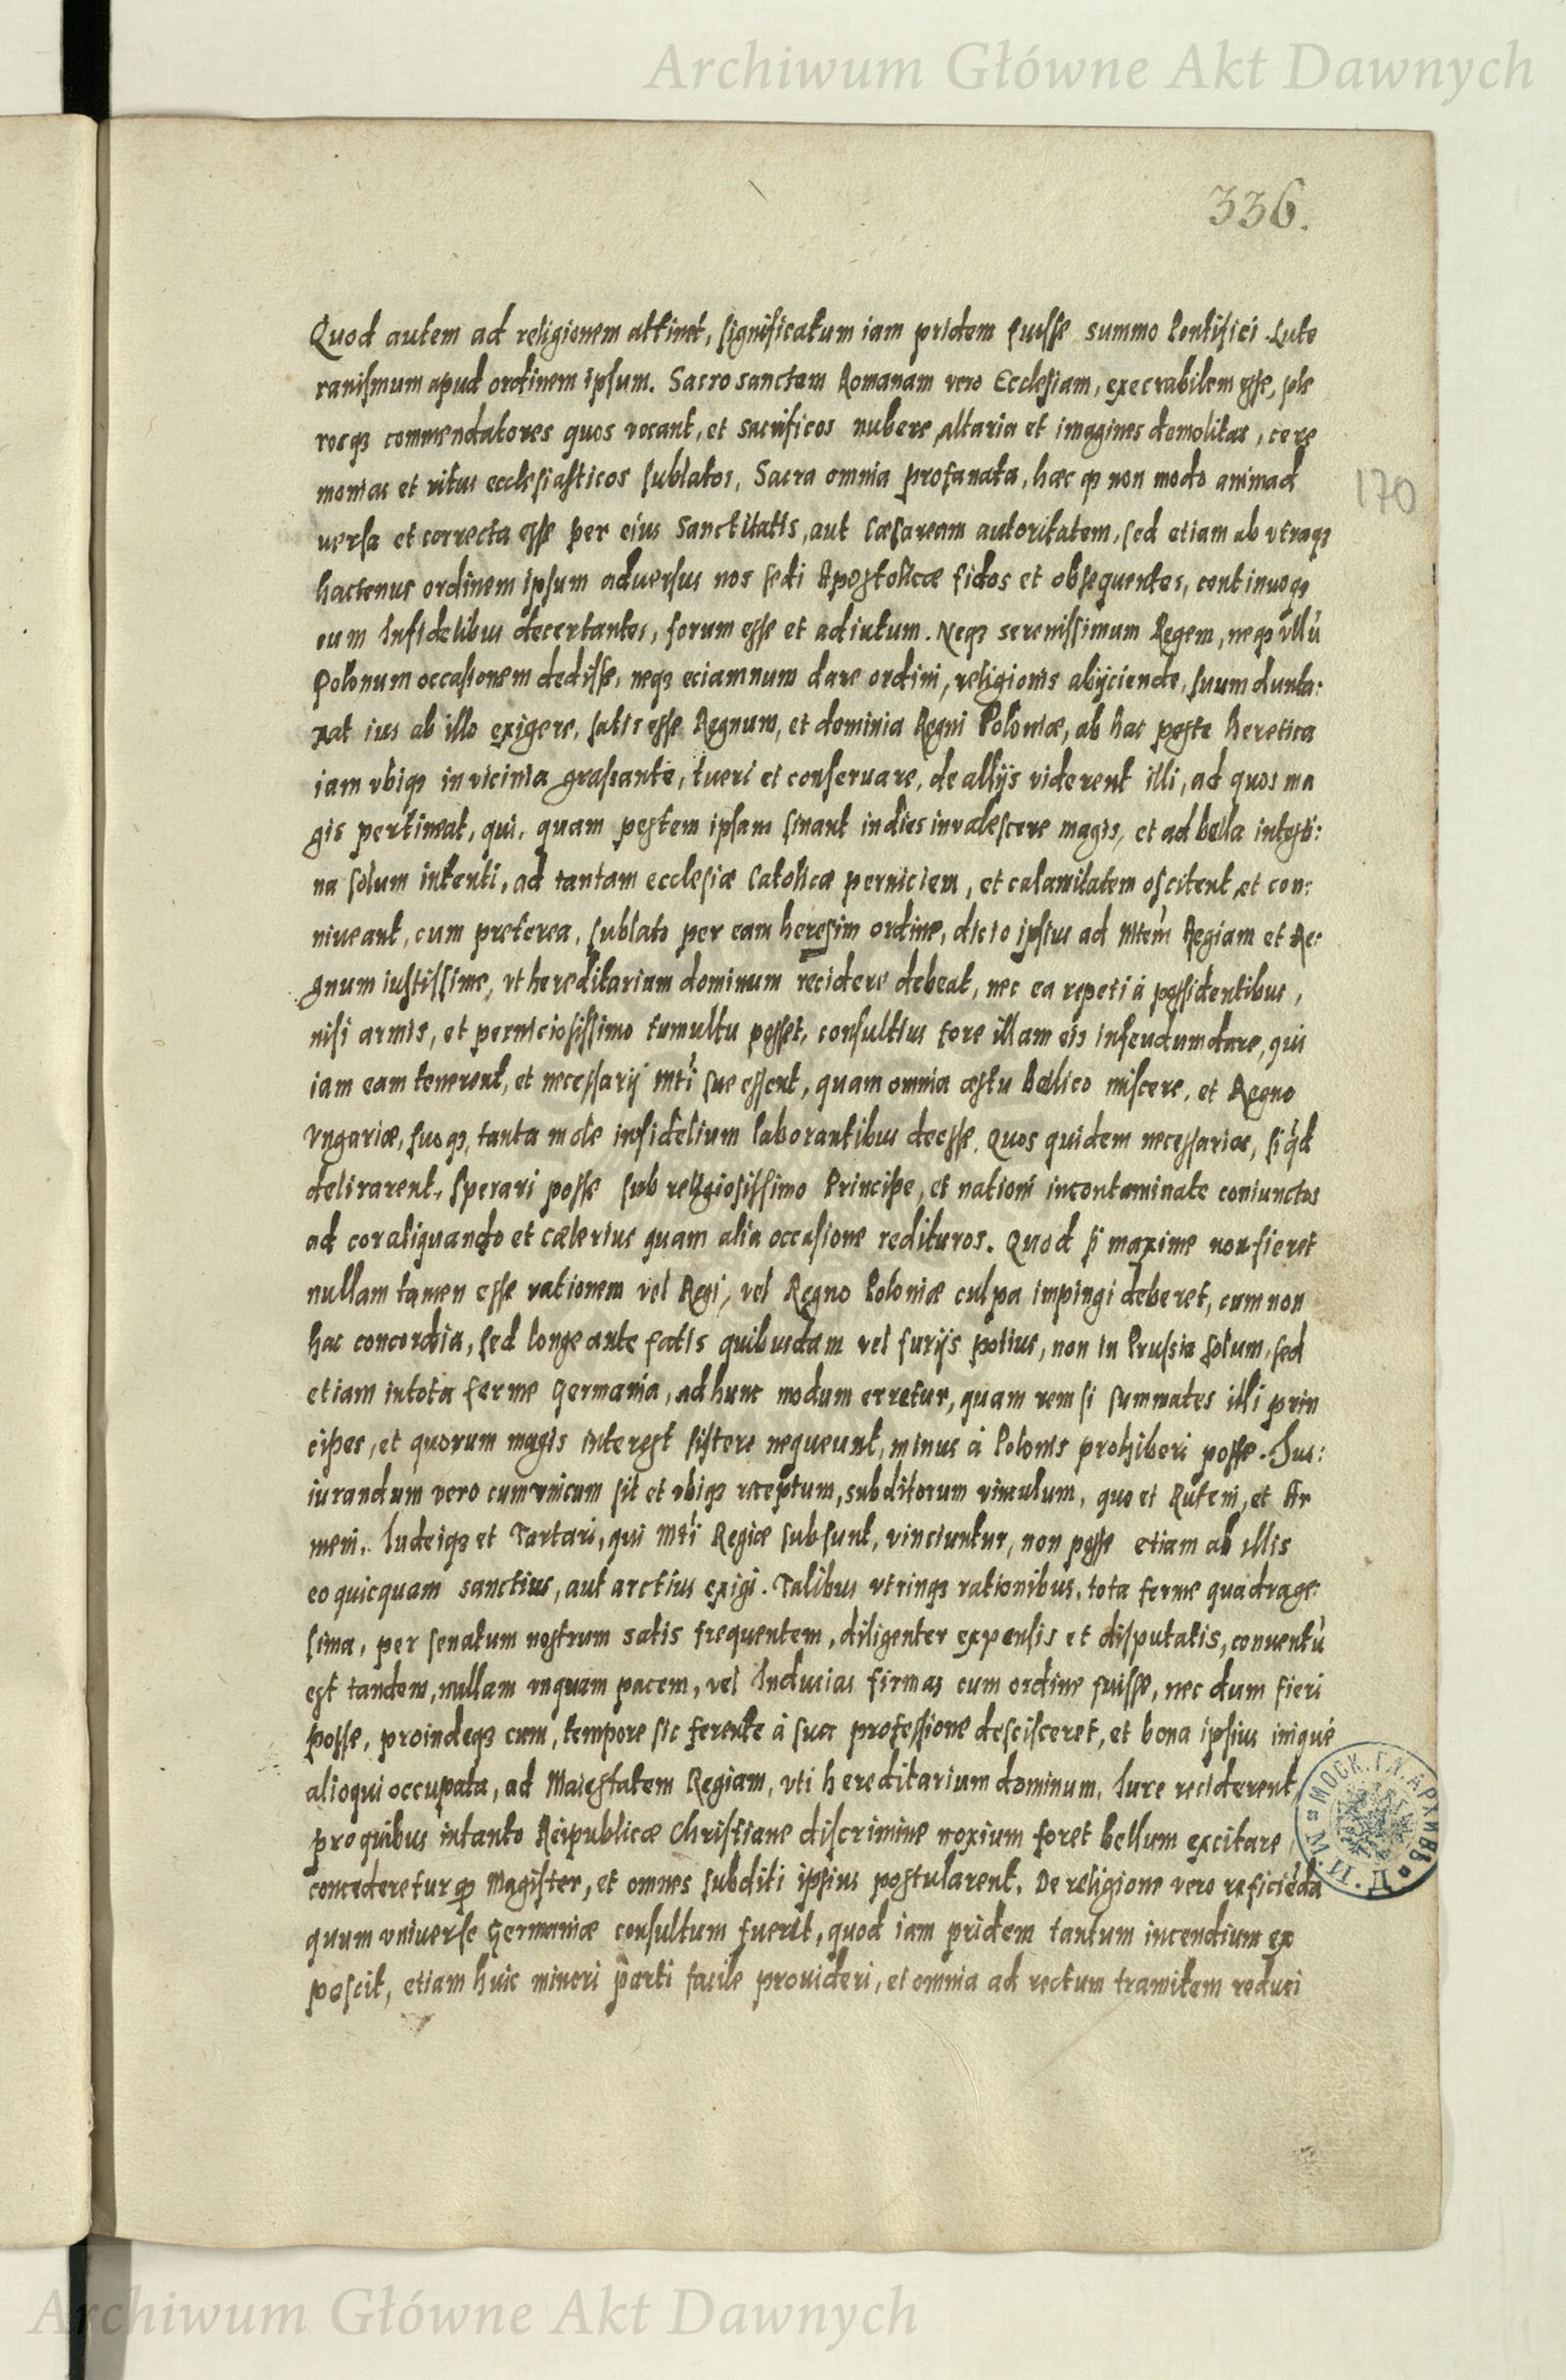 Archiwum Główne Akt Dawnych
336.
Quod autem ad religionem attinet, significatum iam pridem fuisse summo Pontifici Lute
ranismum apud ordinem ipsum. Sacro sanctam Romanam vero Ecclesiam, execrabilem esse, ple
rosqȝ commendatores quos vocant, et sacrificos nubere, altaria et imagines demolitas, cere
monias et ritus ecclesiasticos sublatos, Sacra omnia profanata, hæc qȝ non modo animad
170
versa et correcta esse per eius Sanctitatis, aut Cæsaream autoritatem, sed etiam ab vtraqȝ
hactenus ordinem ipsum adversus nos sedi Apostolicæ fidos et obsequentes, continuoqȝ
cum Infidelibus decertantes, forum esse et adiutum. Neqȝ serenissimum Regem, neqȝ vllũ
Polonum occasionem dedisse, neqȝ eciamnum dare ordini, religionis abijciende, suum dunta:
xat ius ab illo exigere, satis esse Regnum, et dominia Regni Poloniæ, ab hac peste heretica
iam vbiqȝ in vicinia grassante, tueri et conservare, de allijs viderent illi, ad quos ma
gis pertineat, qui, quam pestem ipsam sinant indies invalescere magis, et ad bella intesti:
na solum intenti, ad tantam ecclesiæ Catolicæ perniciem, et calamitatem oscitent, et con:
niveant, cum preterea, sublato per eam heresim ordine, dicio ipsius ad Mtem Regiam et Re:
gnum iustissime, vt hereditarium dominum recidere debeat, nec ea repeti à possidentibus,
nisi armis, et perniciosissimo tumultu posset, consultius fore illam eis infeudum dare, qui
iam eam tenerent, et necessarij Mti sue essent, quam omnia æstu bellico miscere, et Regno
Vngariæ, suoqȝ, tanta mole infidelium laborantibus deesse. Quos quidem necessarios, si qd
delirarent, sperari posse sub religiosissimo Principe, et nationi incontaminate coniunctos
ad cor aliquando et cælerius quam alia occasione redituros. Quod si maxime non fieret
nullam tamen esse rationem vel Regi, vel Regno Poloniæ culpa impingi deberet, cum non
hac concordia, sed longe ante fatis quibusdam vel furijs potius, non in Prussia solum, sed
etiam in tota ferme Germania, ad hunc modum erretur, quam rem si summates illi prin
cipes, et quorum magis interest sistere nequeunt, minus à Polonis prohiberi posse. Ius:
iurandum vero cum vnicum sit et vbiqȝ receptum, subditorum vinculum, quo et Ruteni, et Ar
meni, Iudeiqȝ et Tartari, qui Mti Regiæ subsunt, vinciuntur, non posse etiam ab illis
eo quicquam sanctius, aut arctius exigi. Talibus vtrinqȝ rationibus, tota ferme quadrage:
sima, per senatum nostrum satis frequentem, diligenter expensis et disputatis, conventũ
est tandem, nullam vnquam pacem, vel Inducias firmas cum ordine fuisse, nec dum fieri
posse, proindeqȝ cum, tempore sic ferente à sua professione descisceret, et bona ipsius iniqué
alioqui occupata, ad Maiestatem Regiam, vti hereditarium dominum, Iure reciderent
pro quibus in tanto Reipublicæ Christiane discrimine noxium foret bellum excitare,
concederetur qȝ Magister, et omnes subditi ipsius postularent. De religione vero reficiẽda
quum vniverse Germaniæ consultum fuerit, quod iam pridem tantum incendium ex
poscit, etiam huic minori parti facile provideri, et omnia ad rectum tramitem reduci
МОСК. ГЛ. АРХИВЪ
Archiwum Główne Akt Dawnych